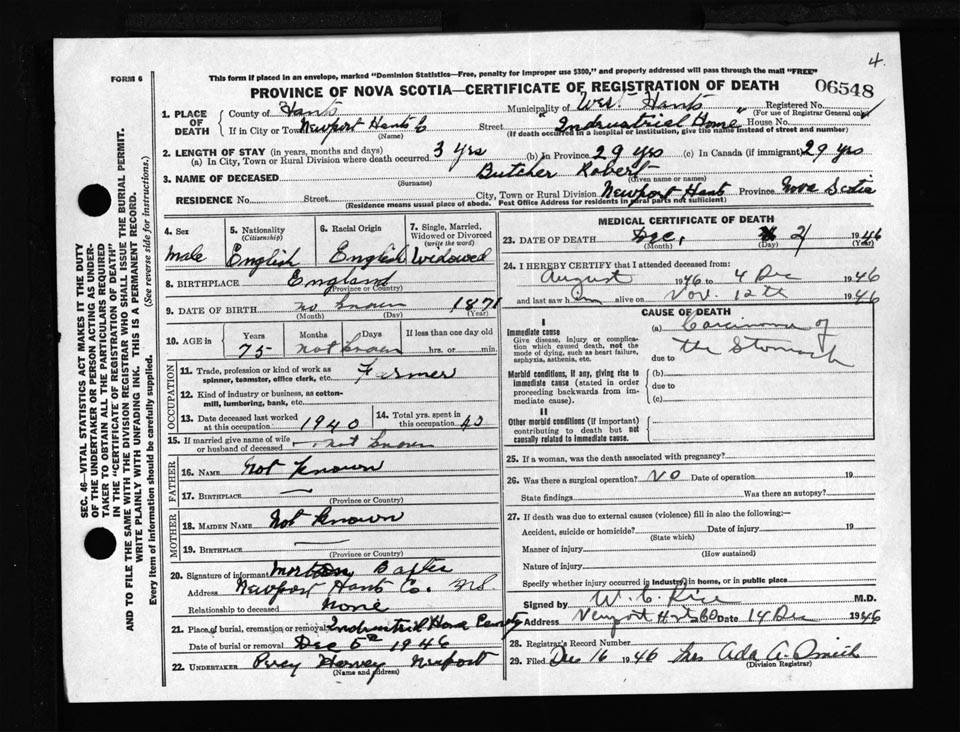 4.
FORM 6
This form if placed in an envelope, marked "Dominion Statistics—Free, penalty for improper use $300," and properly addressed will pass through the mail "FREE"
PROVINCE OF NOVA SCOTIA—CERTIFICATE OF REGISTRATION OF DEATH
06548
SEC. 46—VITAL STATISTICS ACT MAKES IT THE DUTY
OF THE UNDERTAKER OR PERSON ACTING AS UNDER-
TAKER TO OBTAIN ALL THE PARTICULARS REQUIRED
IN THE "CERTIFICATE OF REGISTRATION OF DEATH"
AND TO FILE THE SAME WITH THE DIVISION REGISTRAR WHO SHALL ISSUE THE BURIAL PERMIT.
WRITE PLAINLY WITH UNFADING INK. THIS IS A PERMANENT RECORD.
Every item of information should be carefully supplied. (See reverse side for instructions.)
1. PLACE OF DEATH
County of Hants Municipality of West Hants Registered No.
(For use of Registrar General only)
If in City or Town Newport Hants C Street "Indrustriel Home" House No.
(Name) (If death occurred in a hospital or institution, give the name instead of street and number)
2. LENGTH OF STAY (in years, months and days)
(a) In City, Town or Rural Division where death occurred 3 yrs (b) In Province 29 yrs (c) In Canada (if immigrant) 29 yrs
3. NAME OF DECEASED Butcher Robert
(Surname) (Given name or names)
RESIDENCE No. Street City, Town or Rural Division Newport Hants Province Nova Scotia
(Residence means usual place of abode. Post Office Address for residents in rural parts not sufficient)
4. Sex
male
5. Nationality
(Citizenship)
English
6. Racial Origin
English
7. Single, Married,
Widowed or Divorced
(write the word)
Widowed
8. BIRTHPLACE England
(Province or Country)
9. DATE OF BIRTH no known 1871
(Month) (Day) (Year)
10. AGE in Years Months Days If less than one day old
75 not known hrs. or min.
OCCUPATION
11. Trade, profession or kind of work as
spinner, teamster, office clerk, etc. Farmer
12. Kind of industry or business, as cotton-
mill, lumbering, bank, etc.
13. Date deceased last worked
at this occupation 1940
14. Total yrs. spent in
this occupation 43
15. If married give name of wife
or husband of deceased not known
FATHER
16. NAME Not known
17. BIRTHPLACE —
(Province or Country)
MOTHER
18. MAIDEN NAME Not known
19. BIRTHPLACE —
(Province or Country)
20. Signature of informant
Address Newport Hants Co. N.S.
Relationship to deceased None
21. Place of burial, cremation or removal Indrustriel Home
Date of burial or removal Dec 1946
22. UNDERTAKER Percy Harvey Newport
(Name and address)
MEDICAL CERTIFICATE OF DEATH
23. DATE OF DEATH Dec, 1946
(Month) (Day) (Year)
24. I HEREBY CERTIFY that I attended deceased from:
August 1946 to 4 Dec 1946
and last saw him alive on Nov. 12th 1946
CAUSE OF DEATH
I
Immediate cause
Give disease, injury or complica-
tion which caused death, not the
mode of dying, such as heart failure,
asphyxia, asthenia, etc.
(a) Carcinoma of
the Stomach
due to
Morbid conditions, if any, giving rise to
immediate cause (stated in order
proceeding backwards from im-
mediate cause).
(b)
due to
(c)
II
Other morbid conditions (if important)
contributing to death but not
causally related to immediate cause.
25. If a woman, was the death associated with pregnancy?
26. Was there a surgical operation? NO Date of operation 19
State findings Was there an autopsy?
27. If death was due to external causes (violence) fill in also the following:—
Accident, suicide or homicide? Date of injury 19
(State which)
Manner of injury
(How sustained)
Nature of injury
Specify whether injury occurred in industry, in home, or in public place
Signed by W. C. Rice M.D.
Address Newport Date 14 Dec 1946
28. Registrar's Record Number
29. Filed Dec 16 1946 Mrs Ada A. Smith
(Division Registrar)